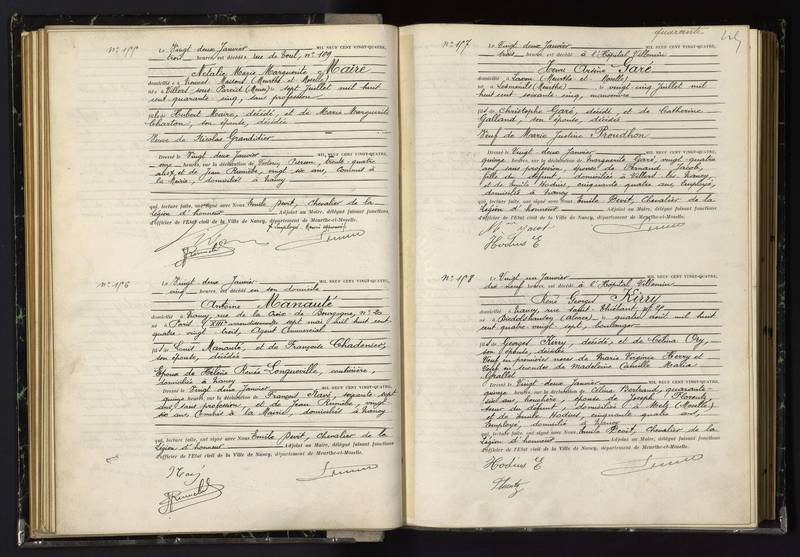 N° 155
Le Vingt deux Janvier MIL NEUF CENT VINGT-QUATRE,
trois heures, est décédée rue de Toul, n° 109
Marie Marguerite Maire
domiciliée à (Meurthe et Moselle)
née à Villers sous Pareid (Meuse) le sept Juillet mil huit
cent quarante cinq, sans profession
fille de Hubert Maire, décédé, et de Marie Marguerite
Charton, son épouse, décédée
Veuve de Nicolas Grandidier
Dressé le Vingt deux Janvier MIL NEUF CENT VINGT-QUATRE,
onze heures, sur la déclaration de Pierson, trente quatre
ans, et de Jean Rumiche, vingt six ans, Commis à
la Mairie, domiciliés à Nancy
qui, lecture faite, ont signé avec Nous Emile Devit, Chevalier de la
Légion d'honneur Adjoint au Maire, délégué faisant fonctions
d'officier de l'État civil de la Ville de Nancy, département de Meurthe-et-Moselle.
N° 156
Le Vingt deux Janvier MIL NEUF CENT VINGT-QUATRE,
vingt heures, est décédé en son domicile
Antoine Manauté
domicilié à Nancy, rue de la Croix de Bourgogne, n° 20
né à Paris sept mai mil huit cent
quatre vingt trois, Agent Commercial
fils de Louis Manauté, et de Françoise
son épouse, décédés
Epoux de Hélène Renée Longueville, couturière,
domiciliée à Nancy
Dressé le Vingt deux Janvier MIL NEUF CENT VINGT-QUATRE,
quinze heures, sur la déclaration de François soixante sept
ans, sans profession, et de Jean Rumiche, vingt
six ans, Commis à la Mairie, domiciliés à Nancy
qui, lecture faite, ont signé avec Nous Emile Devit, Chevalier de la
Légion d'honneur Adjoint au Maire, délégué faisant fonctions
d'officier de l'État civil de la Ville de Nancy, département de Meurthe-et-Moselle.
quarante
N° 157
Le Vingt deux Janvier MIL NEUF CENT VINGT-QUATRE,
trois heures, est décédé à l'Hôpital Villemin
Henri Arsène Garé
domicilié à Laxou (Meurthe et Moselle)
né à Lesménils (Meurthe) le vingt cinq Juillet mil
huit cent soixante cinq, manœuvre
fils de Christophe Garé, décédé et de Catherine
Galland, son épouse, décédée
Veuf de Marie Justine Proudhon
Dressé le Vingt deux Janvier MIL NEUF CENT VINGT-QUATRE,
quinze heures, sur la déclaration de Marguerite Garé, vingt quatre
ans, sans profession, épouse de Fernand Jacob,
fille du défunt, domiciliée à Villers les Nancy,
et de Emile Hodius, cinquante quatre ans, employé,
domicilié à Nancy
qui, lecture faite, ont signé avec Nous Emile Devit, Chevalier de la
Légion d'honneur Adjoint au Maire, délégué faisant fonctions
d'officier de l'État civil de la Ville de Nancy, département de Meurthe-et-Moselle.
Hodius E
N° 158
Le Vingt un Janvier MIL NEUF CENT VINGT-QUATRE,
dix neuf heures, est décédé à l'Hôpital Villemin
René Georges Kirry
domicilié à Nancy, rue Saint Thiébaut, n° 47
né à (Alsace) le quatre Août mil huit
cent quatre vingt sept, boulanger
fils de Georges Kirry, décédé, et de Célina
son épouse, décédée
Veuf en premières noces de Marie Virginie Henry et
en secondes de Madeleine Camille Maria
Dressé le Vingt deux Janvier MIL NEUF CENT VINGT-QUATRE,
quinze heures, sur la déclaration de Célina quarante
six ans, bouchère, épouse de Joseph Florentz,
sœur du défunt, domiciliée à Metz (Moselle)
et de Emile Hodius, cinquante quatre ans,
employé, domicilié à Nancy
qui, lecture faite, ont signé avec Nous Emile Devit, Chevalier de la
Légion d'honneur Adjoint au Maire, délégué faisant fonctions
d'officier de l'État civil de la Ville de Nancy, département de Meurthe-et-Moselle.
Hodius E
Florentz